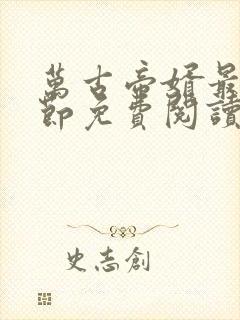 萬古帝婿最
節免費閱讀
史志創